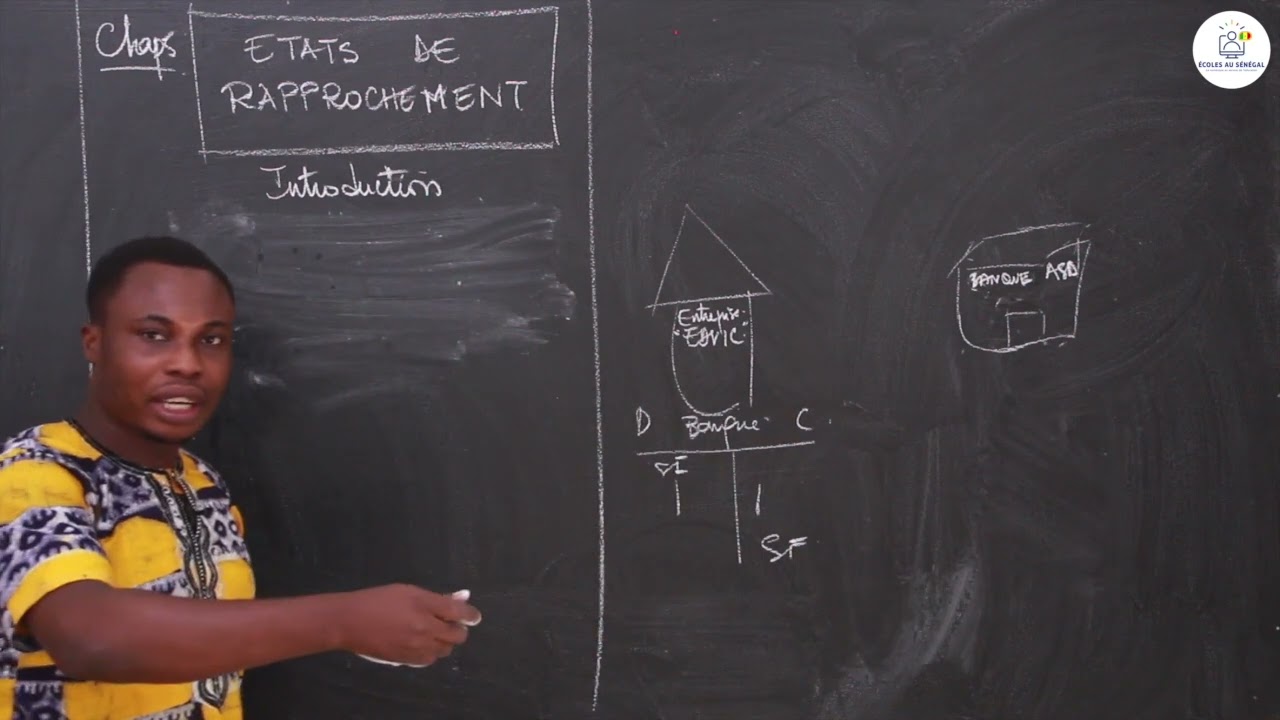 Chap:
ETATS DE
RAPPROCHEMENT
Introduction
Entreprise
BANQUE ASD
D Banque C
SI
SF
ÉCOLES AU SÉNÉGAL